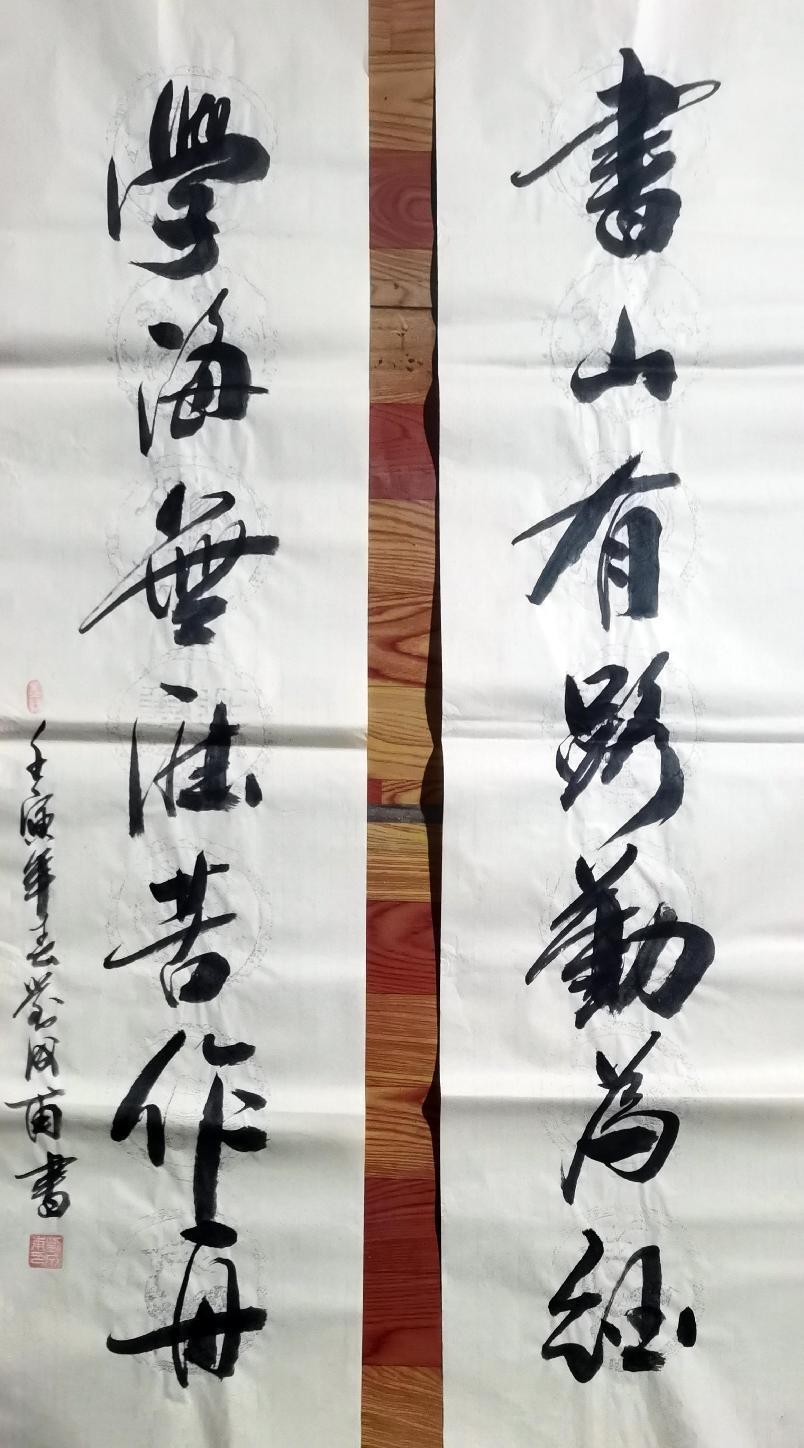 書山有路勤為經
學海無涯苦作舟
壬寅年春劉甫書